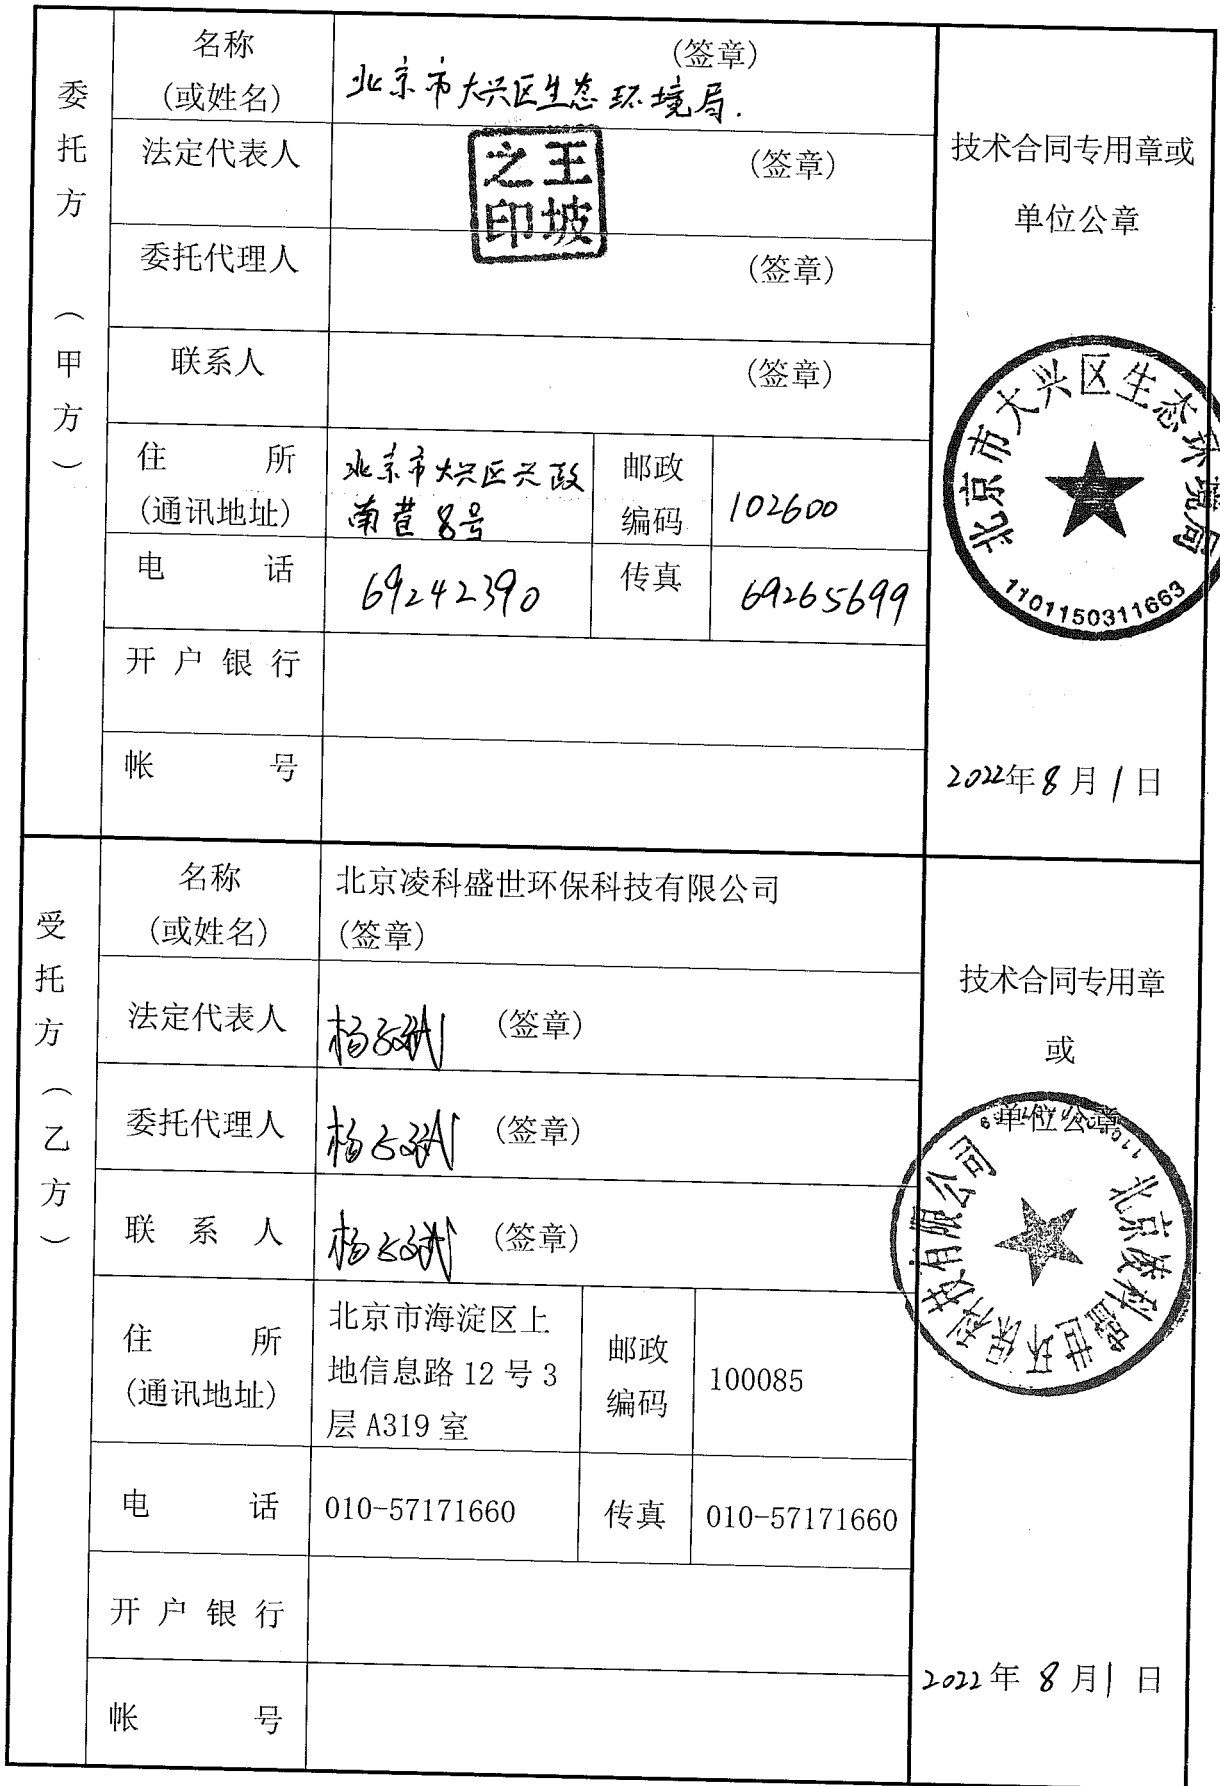 委托方（甲方）
名称
(或姓名)
(签章)
北京市大兴区生态环境局.
法定代表人
(签章)
王坡
之印
委托代理人
(签章)
联系人
(签章)
住 所
(通讯地址)
北京市大兴区兴政
南巷8号
邮政
编码
102600
电 话
69242390
传真
69265699
开户银行
帐 号
技术合同专用章或
单位公章
北京市大兴区生态环境局
1101150311663
2022年8月1日
受托方（乙方）
名称
(或姓名)
北京凌科盛世环保科技有限公司
(签章)
法定代表人
(签章)
委托代理人
(签章)
联系人
(签章)
住 所
(通讯地址)
北京市海淀区上
地信息路12号3
层A319室
邮政
编码
100085
电 话
010-57171660
传真
010-57171660
开户银行
帐 号
技术合同专用章
或
单位公章
北京凌科盛世环保科技有限公司
2022年8月1日